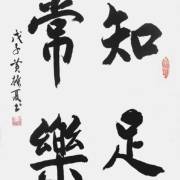 知足
常樂
戊子黃 夏書